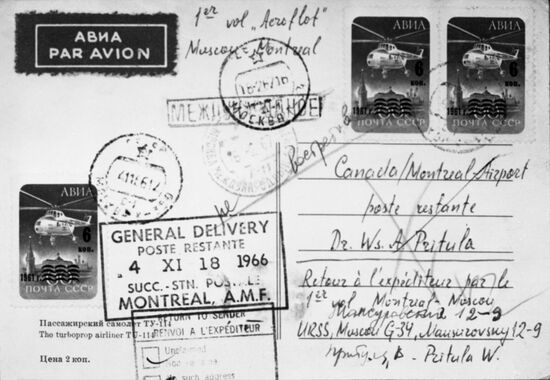 АВИА
PAR AVION
1er vol „Aeroflot"
Moscou - Montreal
МЕЖДУНАРОДНОЕ
МОСКВА
АВИА
6 коп.
1961 г.
ПОЧТА СССР
АВИА
6 коп.
1961 г.
ПОЧТА СССР
Canada/Montreal Airport
poste restante
Dr. Ws. A Pritula
Retour à l'expéditeur par le
1er vol Montreal-Moscou
Мансуровский 12-9
URSS, Moscou G34, Mansurovsky 12-9
Притула, В - Pritula W.
АВИА
6 коп.
1961 г.
ПОЧТА СССР
GENERAL DELIVERY
POSTE RESTANTE
4 XI 18 1966
SUCC.-STN. POSTALE
MONTREAL, A.M.F.
RETURN TO SENDER
RENVOI A L'EXPÉDITEUR
Unclaimed
No such address
Пассажирский самолет ТУ-114
The turboprop airliner TU-114
Цена 2 коп.